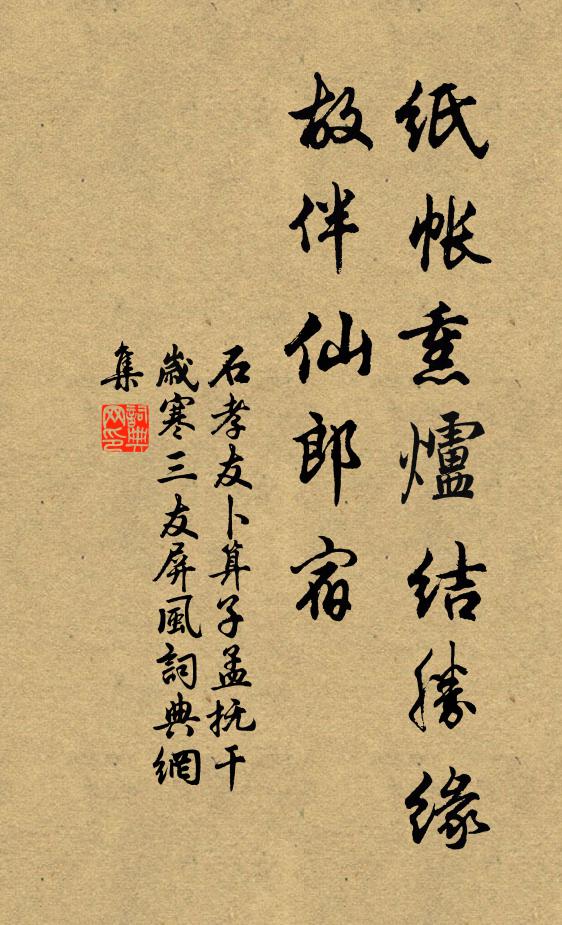 纸帐熏爐结勝缘
故伴仙郎宿
石孝友卜算子孟抚干
岁寒三友屏風詞典網
集
詞典网印